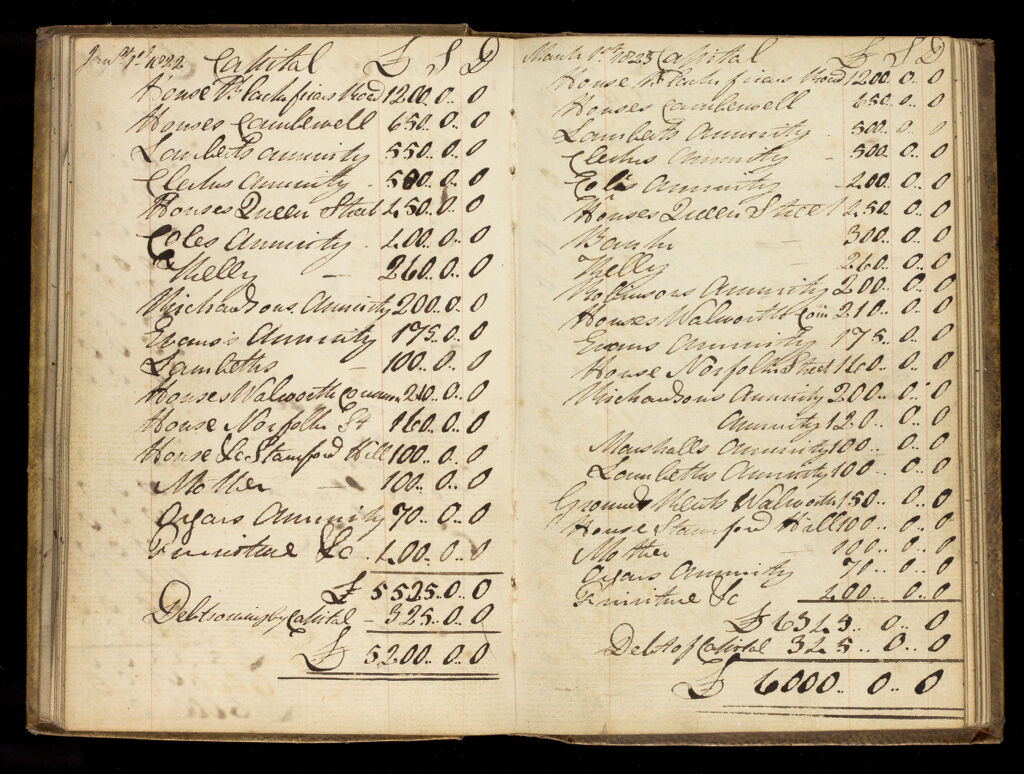 Janry 1st 1822 Capital £ S D
House Blackfriars Road 1200.. 0.. 0
Houses Camberwell 650.. 0.. 0
Lambeth annuity 550.. 0.. 0
annuity 500.. 0.. 0
Houses Queen Street 450.. 0.. 0
Coles Annuity 400.. 0.. 0
Kelly — 260.. 0.. 0
Richardsons Annuity 200.. 0.. 0
Evans's Annuity 175.. 0.. 0
Lambeths — 100.. 0.. 0
Houses Walworth Common 210.. 0.. 0
House Norfolk St 160.. 0.. 0
House &c Stamford Hill 100.. 0.. 0
Mother — 100.. 0.. 0
Annuity 70.. 0.. 0
Furniture &c 400.. 0.. 0
£ 5525.. 0.. 0
Debts owing by Capital — 325.. 0.. 0
£ 5200.. 0.. 0
March 1st 1823 Capital £ S D
House Blackfriars Road 1200.. 0.. 0
Houses Camberwell 650.. 0.. 0
Lambeths Annuity 500.. 0.. 0
Annuity — 500.. 0.. 0
Coles Annuity 200.. 0.. 0
Houses Queen Street 450.. 0.. 0
Bank — 300.. 0.. 0
Kelly 260.. 0.. 0
Robinsons Annuity 200.. 0.. 0
Houses Walworth Com 210.. 0.. 0
Evans Annuity 175.. 0.. 0
House Norfolk Street 160.. 0.. 0
Richardsons Annuity 200.. 0.. 0
Annuity 120.. 0.. 0
Marshalls Annuity 100.. 0.. 0
Lambeths Annuity 100.. 0.. 0
Ground Rents Walworth 150.. 0.. 0
House Stamford Hill 100.. 0.. 0
Mother 100.. 0.. 0
Annuity 70.. 0.. 0
Furniture &c 400.. 0.. 0
£ 6325 0.. 0
Debts of Capital 325.. 0.. 0
£ 6000.. 0.. 0